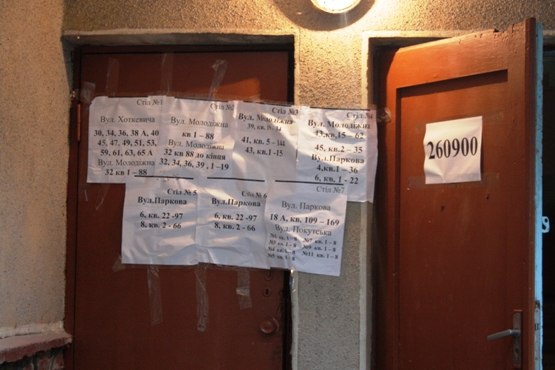 Стіл №1
Вул. Хоткевича
30, 34, 36, 38 А, 40
45, 47, 49, 51, 53,
59, 61, 63, 65 А
Вул. Молодіжна
32 кв 1 – 88
Стіл №2
Вул. Молодіжна
кв 1 – 88
Вул. Молодіжна
32 кв 88 до кінця
32, 34, 36, 39 , 1 –19
Стіл №3
Вул. Молодіжна
41, кв. 5 – 144
43, кв. 1 -15
Стіл №4
Вул. Молодіжна
43,кв,15 – 62
45, кв. 2 – 35
Вул.Паркова
4,кв.1 – 36
6, кв. 1 - 22
Стіл №5
Вул.Паркова
6, кв. 22 -97
8, кв. 2 - 66
Стіл №6
Вул.Паркова
6, кв. 22 -97
8, кв. 2 - 66
Стіл №7
Вул. Паркова
18 А, кв. 109 – 169
Вул. Покутська
№7 кв. 1 - 8
№3 кв. 1 – 8 №9 кв. 1 - 8
№4 кв. 1 – 8 №11 кв. 1 - 8
№5 кв. 1 - 8
260900